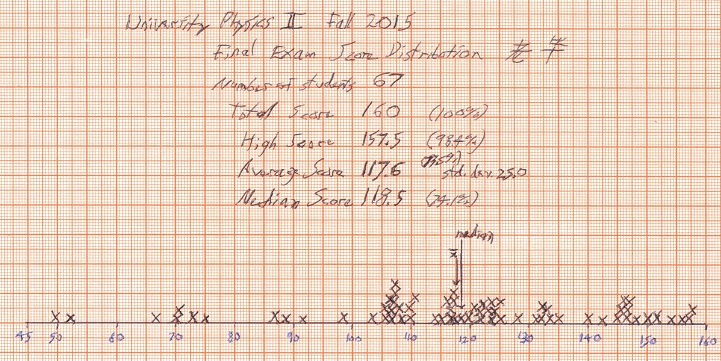 University Physics II Fall 2015
Final Exam Score Distribution
Number of students 67
Total Score 160 (100%)
High Score 157.5 (98.4%)
Average Score 117.6 (73.5%) std. dev. 25.0
Median Score 118.5 (74.1%)
median
x̄
45 50 60 70 80 90 100 110 120 130 140 150 160